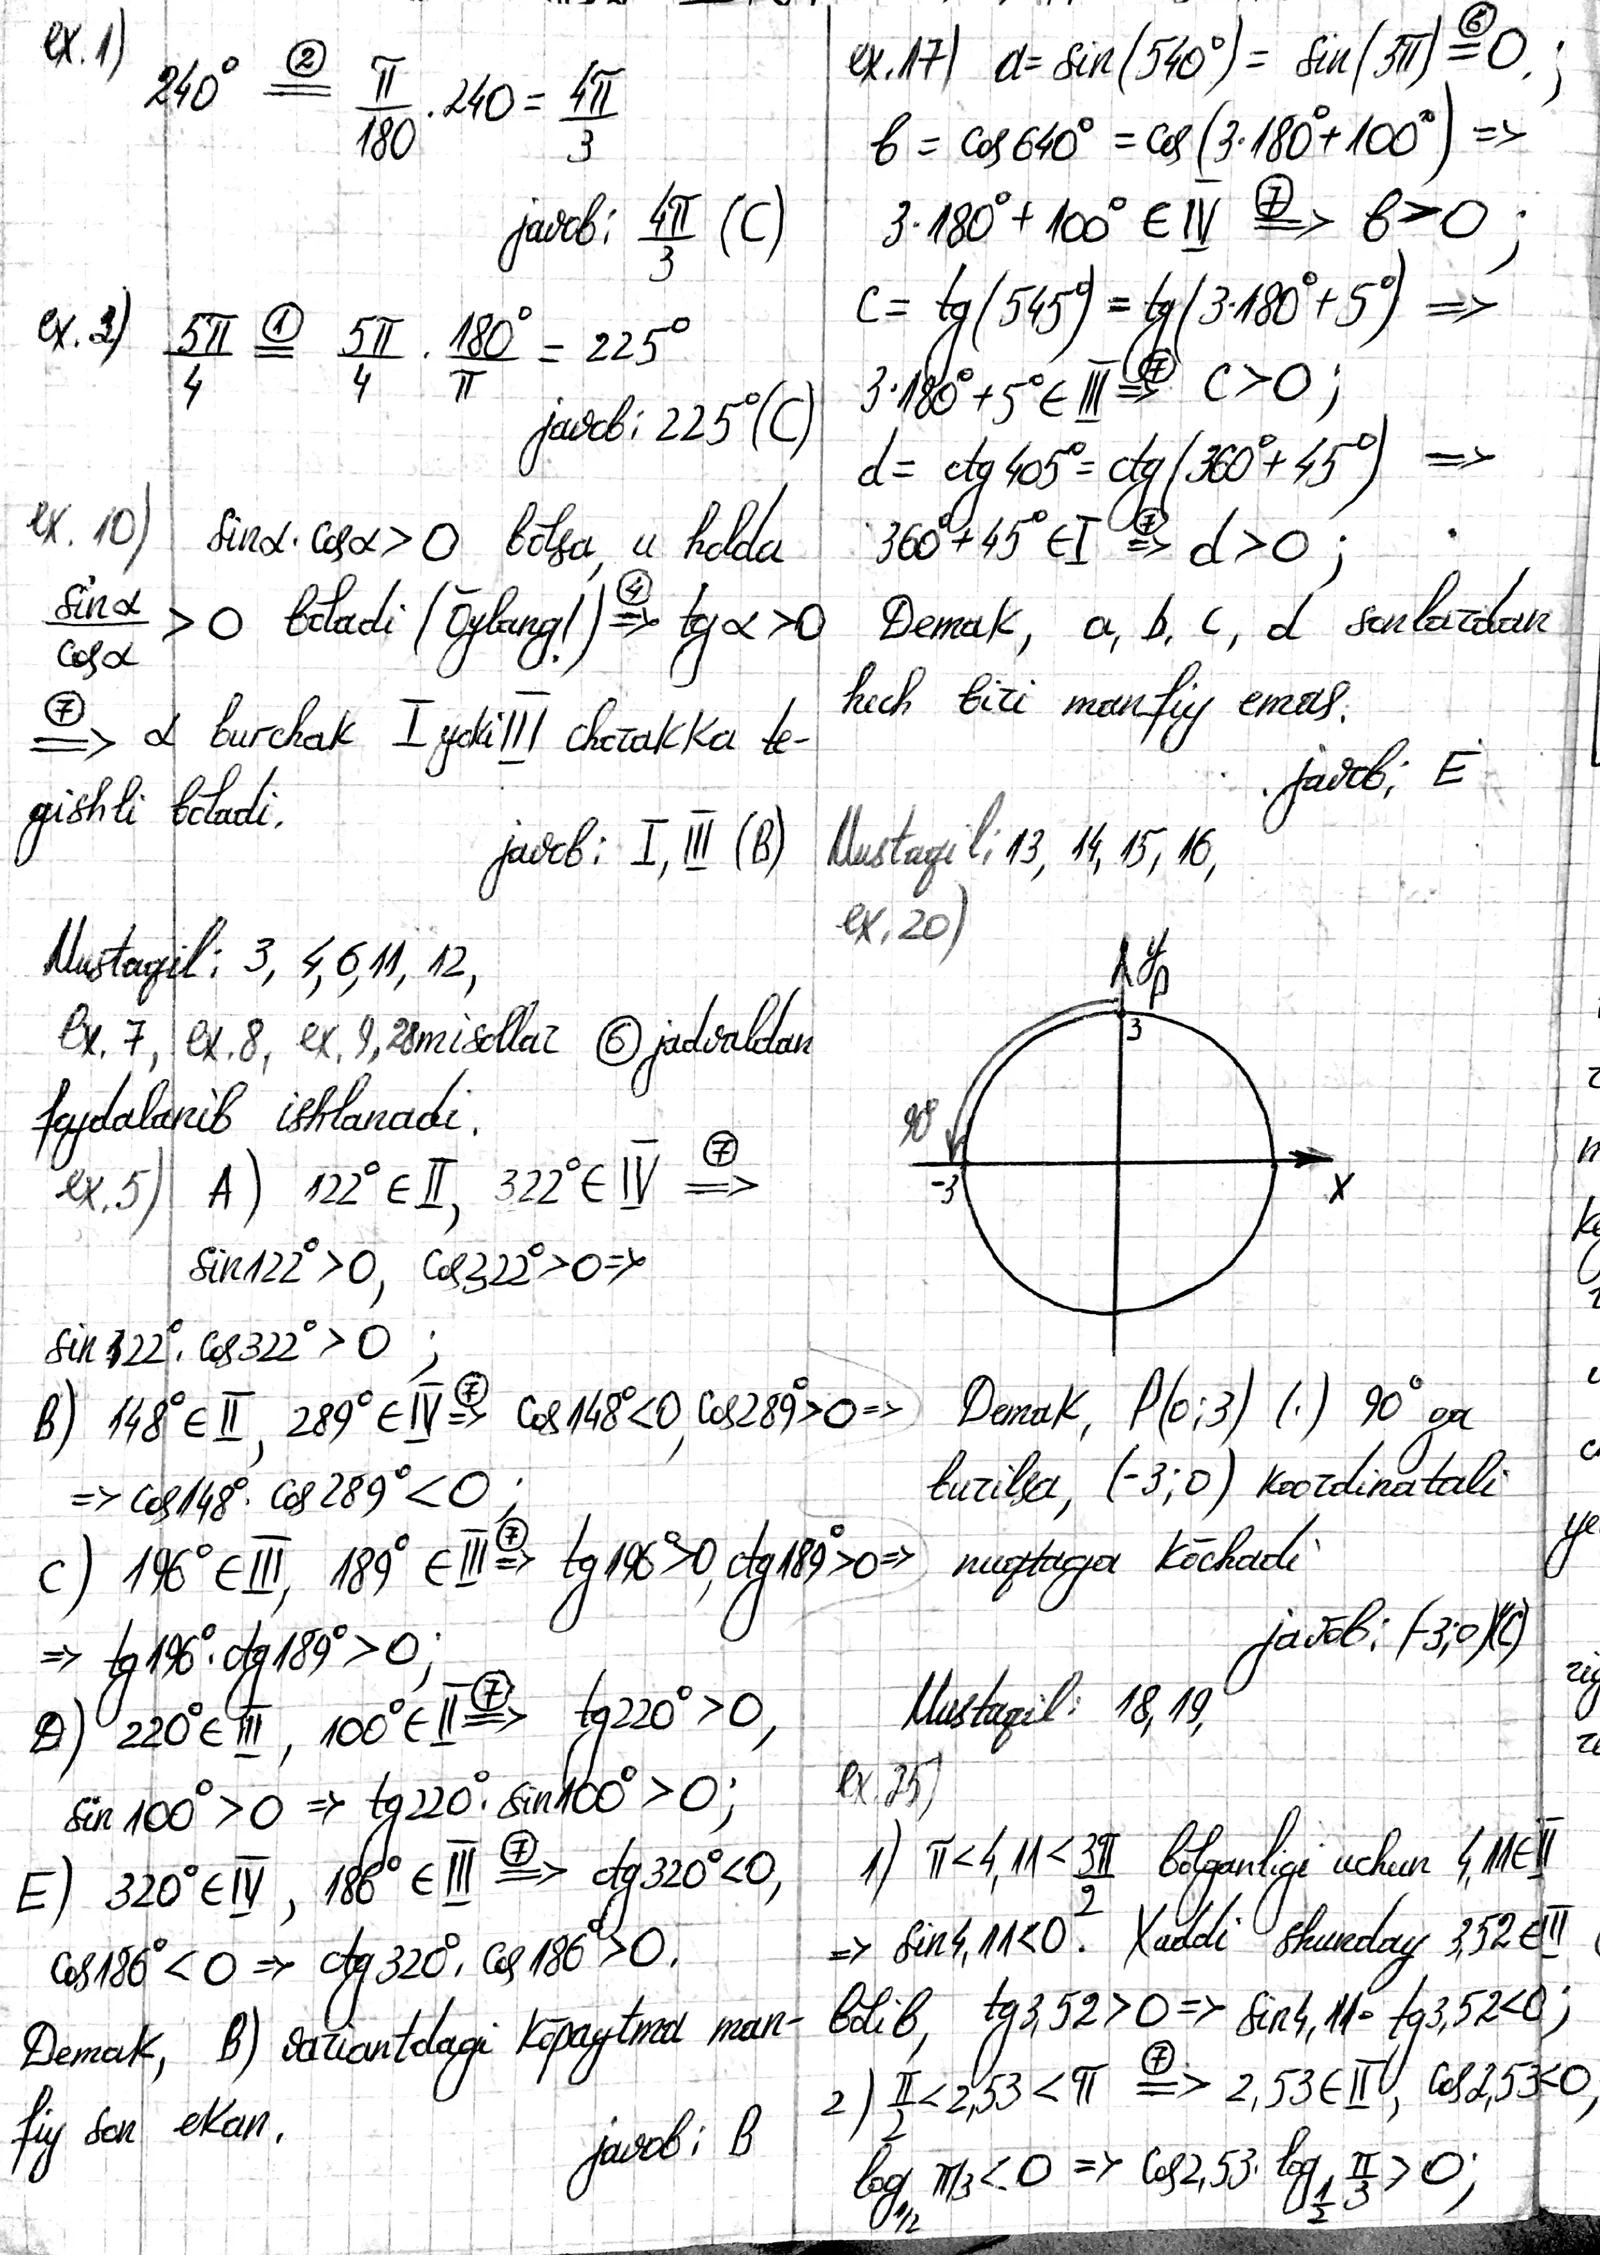 ex.1)
240° ②= π/180 · 240 = 4π/3
javob: 4π/3 (C)
ex.2) 5π/4 ①= 5π/4 · 180°/π = 225°
javob: 225° (C)
ex. 10) sinα · cosα > 0 bo̅lsa, u holda
sinα/cosα > 0 bo̅ladi (O̅ylang!) ④=> tgα > 0
⑦=> α burchak I yoki III chorakka te-
gishli bo̅ladi.
javob: I, III (B)
Mustaqil: 3, 4, 6, 11, 12,
ex. 7, ex. 8, ex. 9, 28 misollar ⑥ jadvaldan
foydalanib ishlanadi.
ex. 5) A) 122° ∈ II, 322° ∈ IV ⑦=>
sin122° > 0, cos322° > 0 =>
sin122° · cos322° > 0 ;
B) 148° ∈ II, 289° ∈ IV ⑦=> cos148° < 0, cos289° > 0 =>
=> cos148° · cos289° < 0 ;
C) 196° ∈ III, 189° ∈ III ⑦=> tg196° > 0, ctg189° > 0 =>
=> tg196° · ctg189° > 0;
D) 220° ∈ III, 100° ∈ II ⑦=> tg220° > 0,
sin100° > 0 => tg220° · sin100° > 0;
E) 320° ∈ IV, 186° ∈ III ⑦=> ctg320° < 0,
cos186° < 0 => ctg320° · cos186° > 0.
Demak, B) variantdagi ko̅paytma man-
fiy son ekan.
javob: B
ex. 17) a = sin(540°) = sin(3π) ⑥= 0. ;
b = cos640° = cos(3·180° + 100°) =>
3·180° + 100° ∈ IV ⑦=> b > 0 ;
c = tg(545°) = tg(3·180° + 5°) =>
3·180° + 5° ∈ III ⑦=> c > 0 ;
d = ctg405° = ctg(360° + 45°) =>
360° + 45° ∈ I ⑦=> d > 0 ;
Demak, a, b, c, d sonlardan
hech biri manfiy emas.
javob: E
Mustaqil: 13, 14, 15, 16,
ex. 20)
y
P
3
90°
-3
x
Demak, P(0;3) (·) 90° ga
burilsa, (-3;0) koordinatali
nuqtaga ko̅chadi
javob: (-3;0) (C)
Mustaqil: 18, 19,
ex. 25)
1) π < 4,11 < 3π/2 bo̅lganligi uchun 4,11 ∈ III
=> sin4,11 < 0. Xaddi shunday 3,52 ∈ III
bo̅lib, tg3,52 > 0 => sin4,11 · tg3,52 < 0;
2) π/2 < 2,53 < π ⑦=> 2,53 ∈ II, cos2,53 < 0,
log₁/₂ π/3 < 0 => cos2,53 · log₁/₂ π/3 > 0;